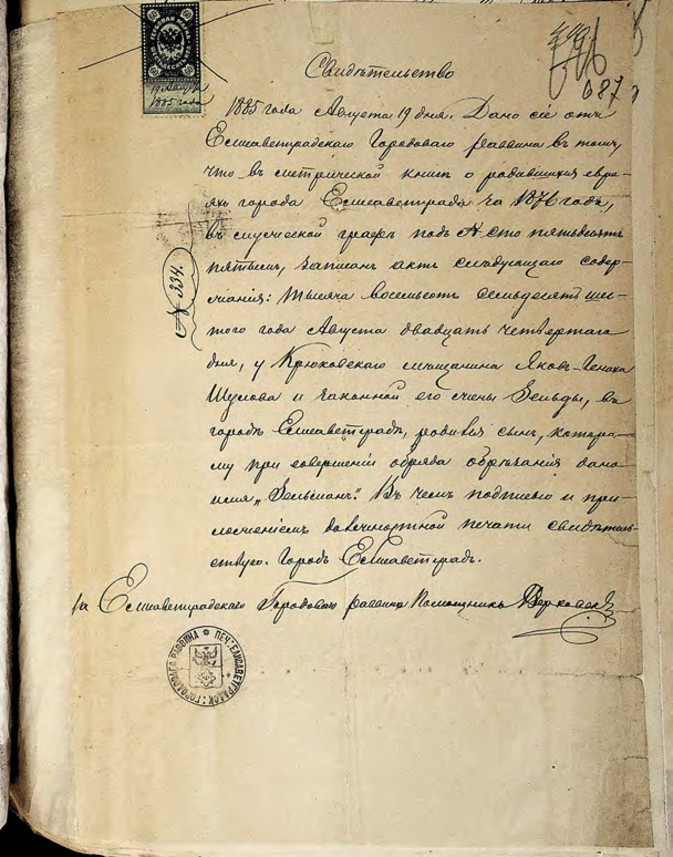 ГЕРБОВАЯ МАРКА
60
60
19 Августа
1885 года
687
Свидѣтельство
1885 года Августа 19 дня. Дано сіе отъ
Елисаветградскаго Городоваго раввина въ томъ,
что въ метрической книгѣ о родившихся евре-
яхъ города Елисаветграда за 1876 годъ,
въ мужеской графѣ подъ № сто пятьдесятъ
пятымъ, записанъ актъ слѣдующаго содер-
жанія: Тысяча восемьсотъ семьдесятъ шес-
таго года Августа двадцать четвертаго
дня, у Крюковскаго мѣщанина Яковъ-Геноха
Шулова и законной его жены Зельды, въ
городѣ Елисаветградѣ, родился сынъ, которо-
му при совершеніи обряда обрѣзанія дано
имя „Зельманъ". Въ чемъ подписью и при-
ложеніемъ должностной печати свидѣтель-
ствую. Городъ Елисаветградъ.
№ 334.
За Елисаветградскаго Городоваго раввина Помощникъ
ПЕЧ: ЕЛИСАВЕТГРАДСК: ГОРОДОВАГО РАВВИНА